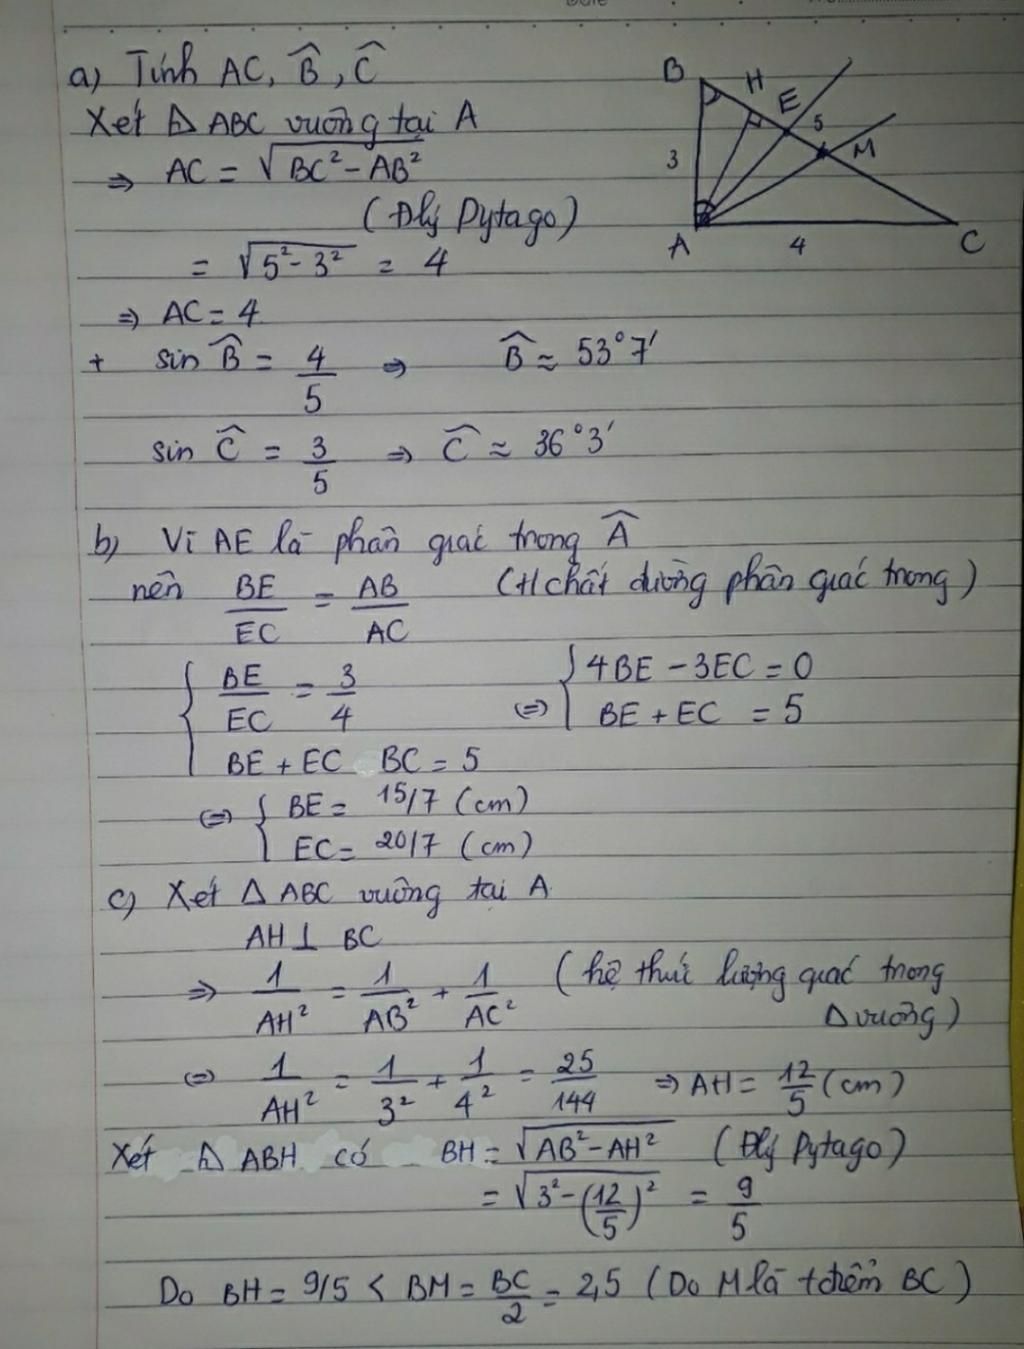 a) Tính AC, B̂, Ĉ
Xét Δ ABC vuông tại A
⇒ AC = √(BC² - AB²)
(Đlý Pytago)
= √(5² - 3²) = 4
⇒ AC = 4
+ sin B̂ = 4/5 ⇒ B̂ ≈ 53°7'
sin Ĉ = 3/5 ⇒ Ĉ ≈ 36°3'
B
H
E
5
M
3
A
4
C
b) Vì AE là phân giác trong Â
nên BE/EC = AB/AC (t/chất đường phân giác trong)
{ BE/EC = 3/4 ⇔ { 4BE - 3EC = 0
BE + EC BC = 5 BE + EC = 5
⇔ { BE = 15/7 (cm)
EC = 20/7 (cm)
c) Xét Δ ABC vuông tại A
AH ⊥ BC
⇒ 1/AH² = 1/AB² + 1/AC² (hệ thức lượng giác trong
Δ vuông)
⇔ 1/AH² = 1/3² + 1/4² = 25/144 ⇒ AH = 12/5 (cm)
Xét Δ ABH có BH = √(AB² - AH²) (Đlý Pytago)
= √(3² - (12/5)²) = 9/5
Do BH = 9/5 < BM = BC/2 = 2,5 (Do M là t/điểm BC)